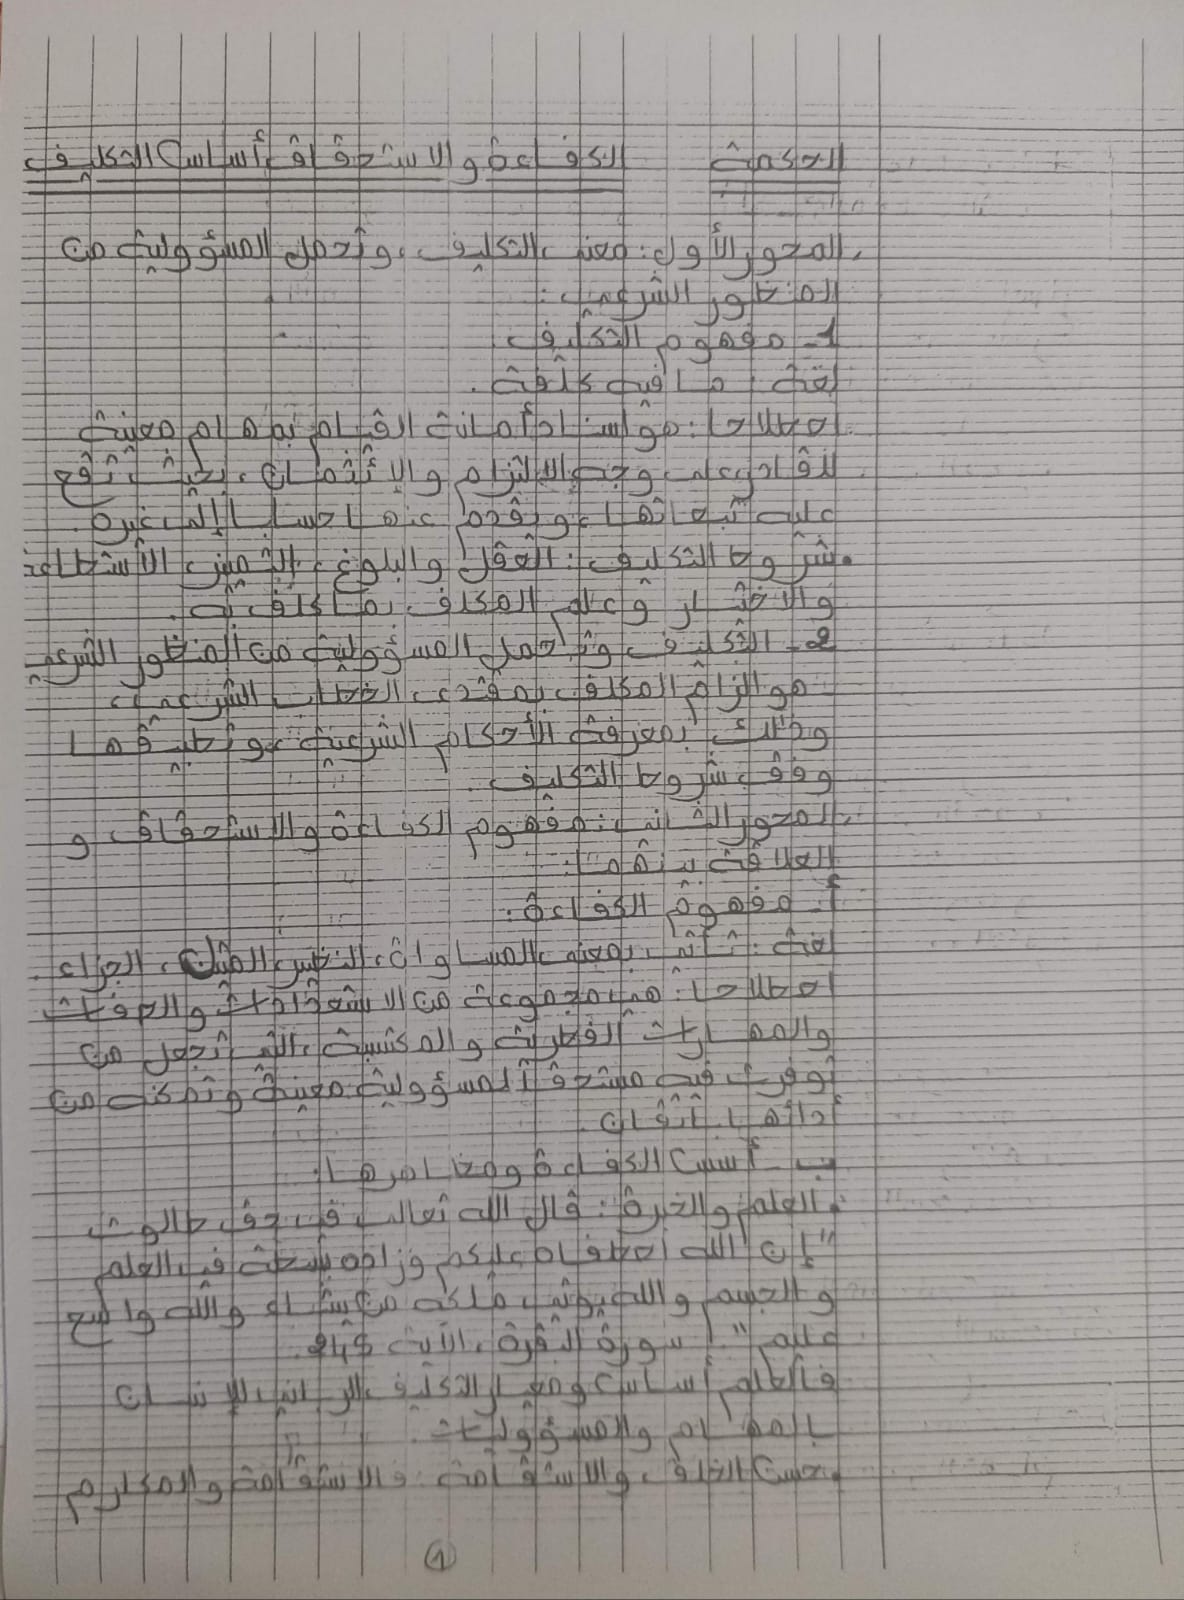 الحكمة الكفاءة والاستحقاق أساس التكليف
المحور الأول: معنى التكليف وتحمل المسؤولية من
المنظور الشرعي:
1- مفهوم التكليف
لغة: ما فيه كلفة.
اصطلاحا: هو إسناد أمانة القيام بمهام معينة
للقادر على وجه الإلتزام والإئتمان، بحيث تقع
عليه تبعاتها ويقدم عنها حسابا إلى غيره.
شروط التكليف: العقل والبلوغ، التمييز، الاستطاعة
والاختيار وعلم المكلف بما كلف به.
2- التكليف وتحمل المسؤولية من المنظور الشرعي
هو إلزام المكلف بمقتضى الخطاب الشرعي،
وذلك بمعرفة الأحكام الشرعية وتطبيقها
وفق شروط التكليف.
المحور الثاني: مفهوم الكفاءة والاستحقاق و
العلاقة بينهما:
أ- مفهوم الكفاءة:
لغة: تأتي بمعنى المساواة، النظير، المثيل، الجزاء.
اصطلاحا: هي مجموعة من الاستعدادات والصفات
والمهارات الفطرية والمكتسبة، التي تجعل من
توفرت فيه مستحقا لمسؤولية معينة وتمكنه من
أدائها بإتقان.
ب- أسس الكفاءة ومظاهرها:
العلم والخبرة: قال الله تعالى في حق طالوت
"إن الله اصطفاه عليكم وزاده بسطة في العلم
والجسم والله يوتي ملكه من يشاء والله واسع
عليم" سورة البقرة، الآية 245.
فالعلم أساس ومعيار التكليف الرباني للإنسان
بالمهام والمسؤوليات.
حسن الخلق والاستقامة: فالاستقامة والمكارم
1